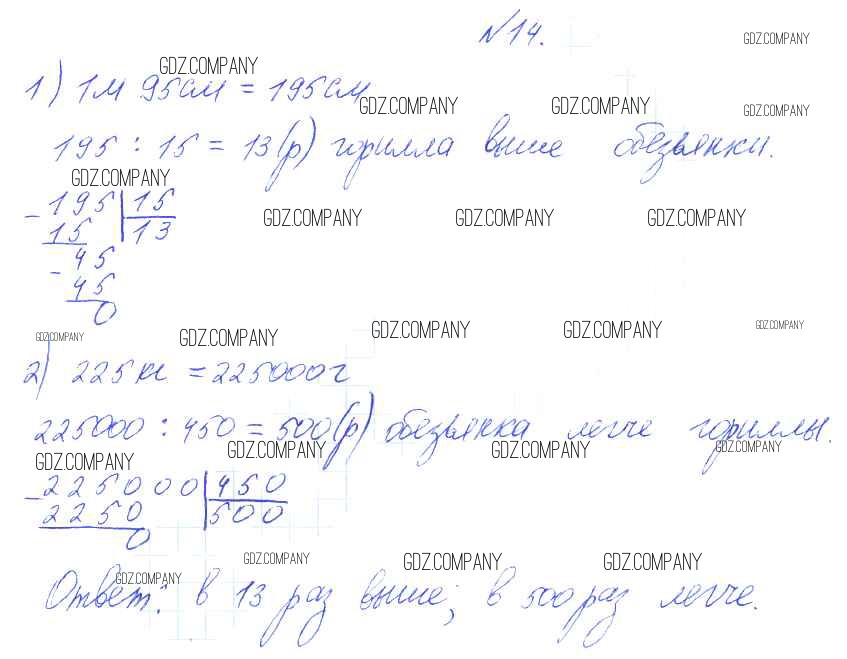 №14.
GDZ.COMPANY
GDZ.COMPANY
1) 1м 95см = 195см
GDZ.COMPANY GDZ.COMPANY GDZ.COMPANY
195 : 15 = 13(р) горилла выше обезьянки.
GDZ.COMPANY
- 195 | 15
15 13
GDZ.COMPANY GDZ.COMPANY GDZ.COMPANY
- 45
45
0
GDZ.COMPANY GDZ.COMPANY GDZ.COMPANY GDZ.COMPANY GDZ.COMPANY
2) 225кг = 225000г
225000 : 450 = 500(р) обезьянка легче гориллы.
GDZ.COMPANY GDZ.COMPANY GDZ.COMPANY GDZ.COMPANY
- 225000 | 450
2250 500
0
GDZ.COMPANY GDZ.COMPANY GDZ.COMPANY
GDZ.COMPANY
Ответ: в 13 раз выше; в 500 раз легче.